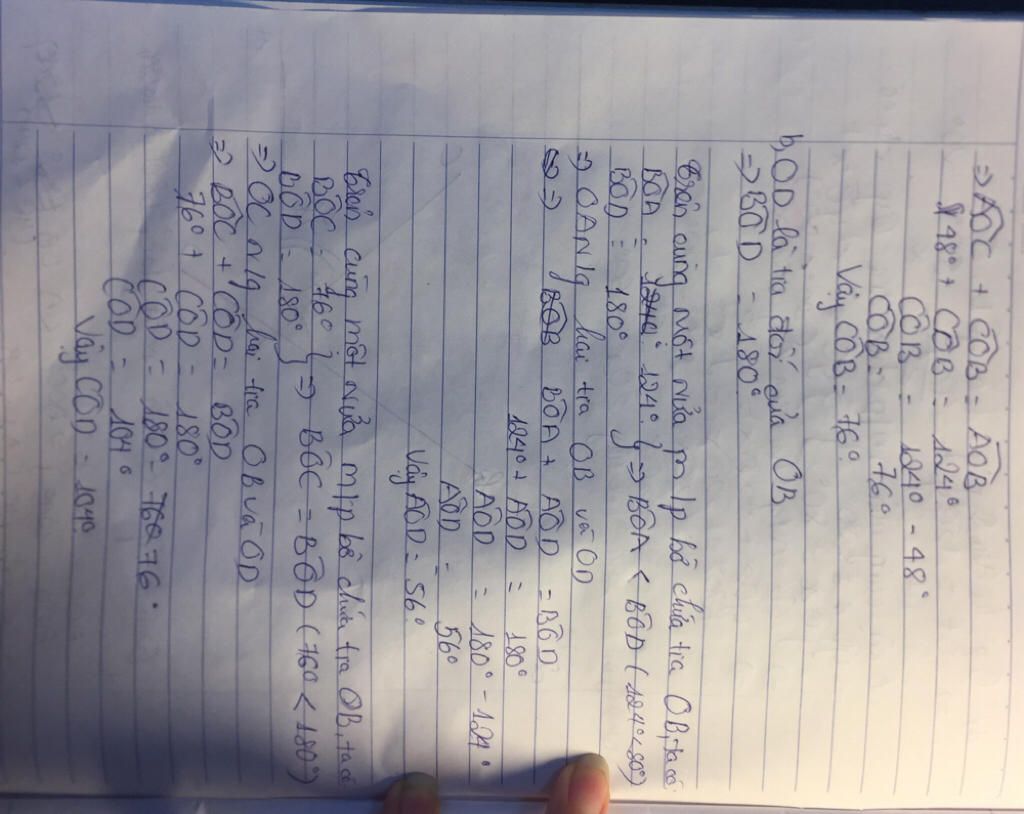 ⇒ AÔC + CÔB = AÔB
48° + CÔB = 124°
CÔB = 124° - 48°
CÔB = 76°
Vậy CÔB = 76°
b, OD là tia đối của OB
⇒ BÔD = 180°
Trên cùng một nửa m/p bờ chứa tia OB, ta có
BÔA = 124°
BÔD = 180° } ⇒ BÔA < BÔD (124° < 180°)
⇒ OA N/g hai tia OB và OD
⇒ BÔA + AÔD = BÔD
124° + AÔD = 180°
AÔD = 180° - 124°
AÔD = 56°
Vậy AÔD = 56°
Trên cùng một nửa m/p bờ chứa tia OB, ta có
BÔC = 76°
BÔD = 180° } ⇒ BÔC = BÔD (760 < 180°)
⇒ OC n/g hai tia OB và OD
⇒ BÔC + CÔD = BÔD
76° + CÔD = 180°
CÔD = 180° - 76°
CÔD = 104°
Vậy CÔD = 104°